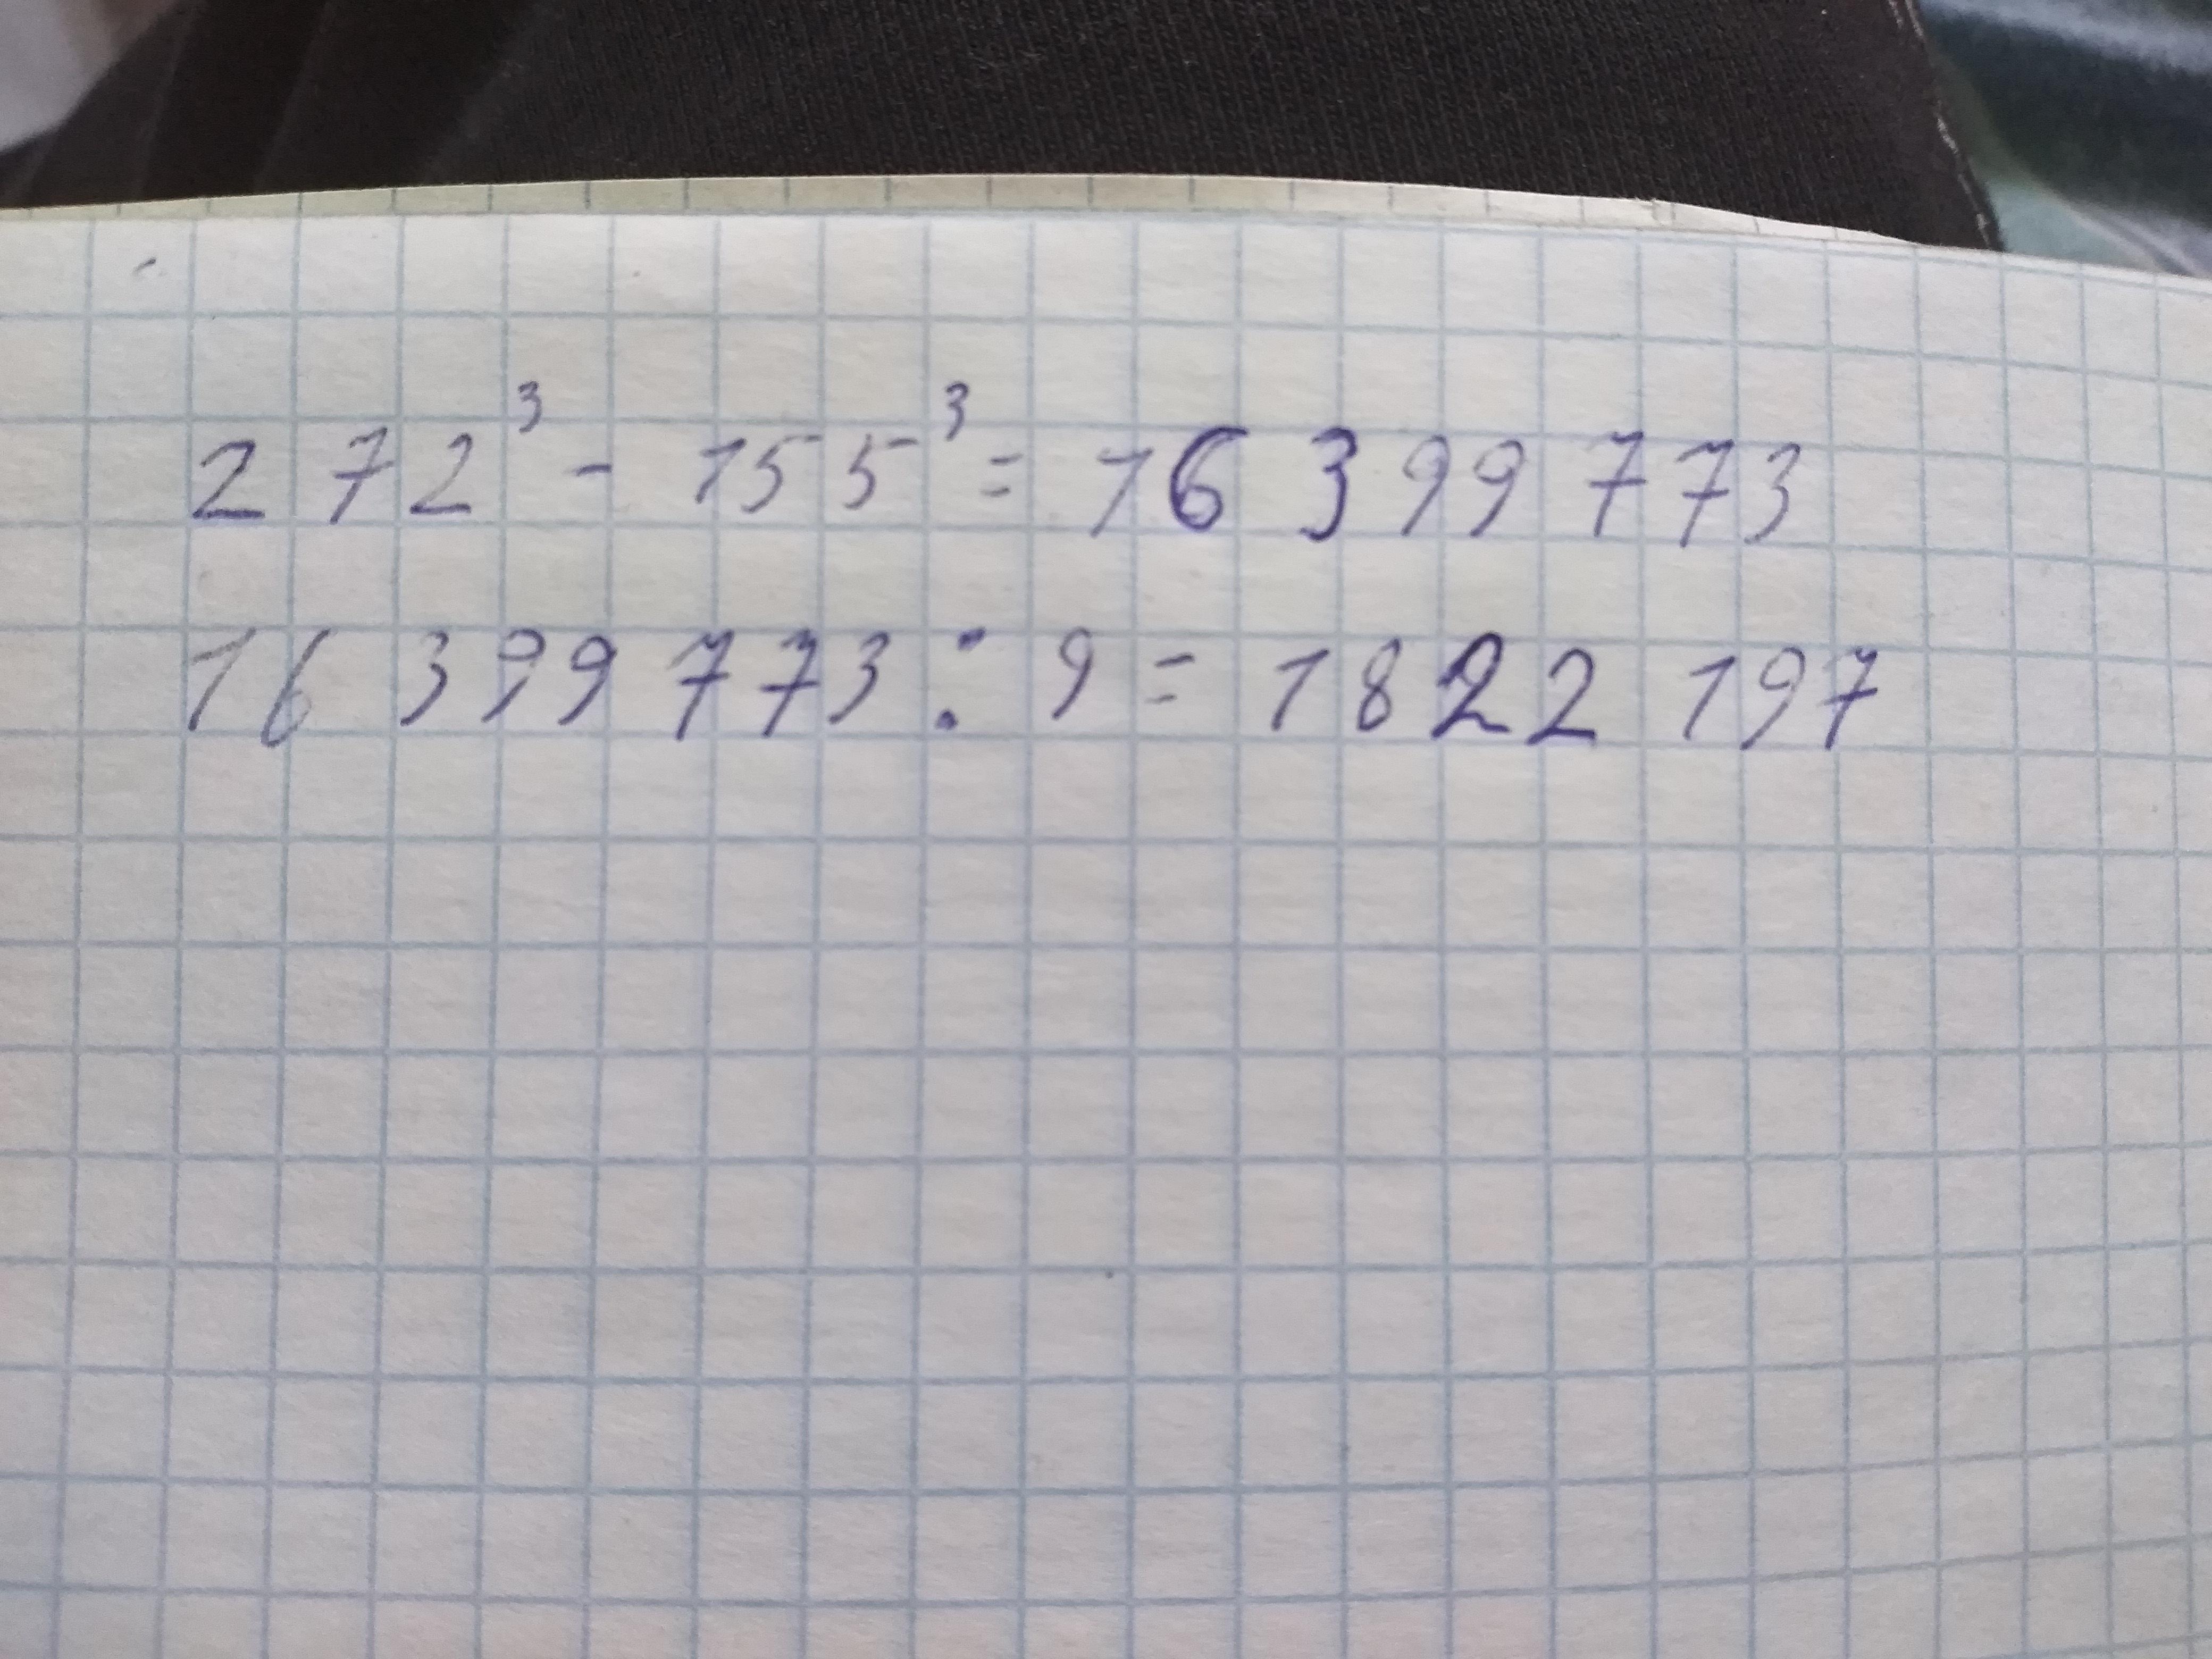 272³ - 155³ = 16 399 773
16 399 773 : 9 = 1822 197